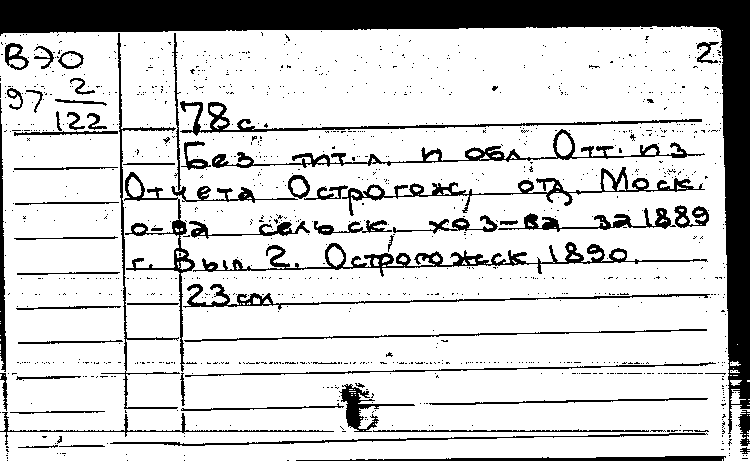 ВЭО
2
97 2/122
78 с.
Без тит. л. и обл. Отт. из
Отчета Острогож. отд. Моск.
о-ва сельск. хоз-ва за 1889
г. Вып. 2. Острогожск, 1890.
23 см.